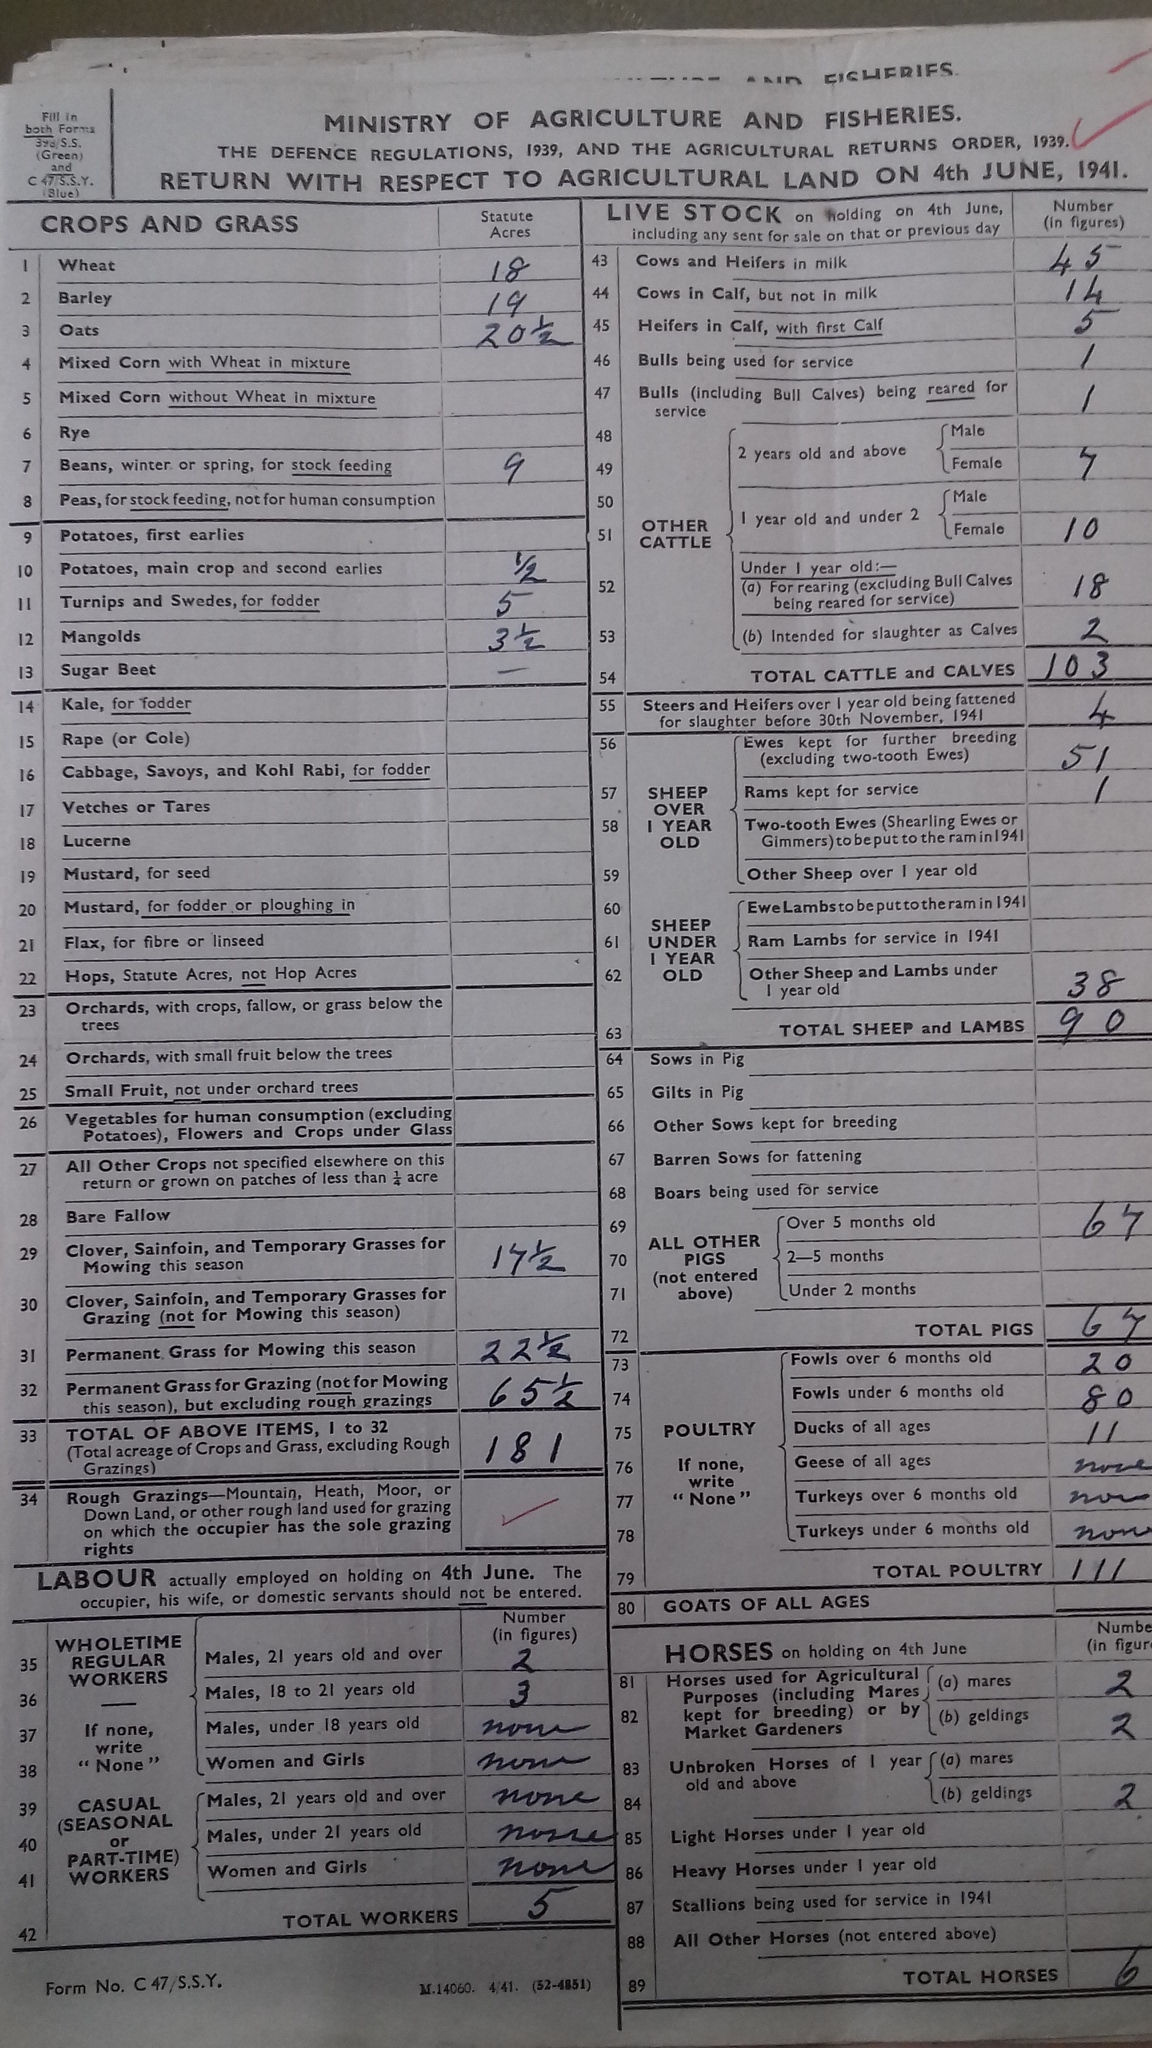 AND FISHERIES.
Fill in
both Forms
398/S.S.
(Green)
and
C 47/S.S.Y.
(Blue)
MINISTRY OF AGRICULTURE AND FISHERIES.
THE DEFENCE REGULATIONS, 1939, AND THE AGRICULTURAL RETURNS ORDER, 1939.
RETURN WITH RESPECT TO AGRICULTURAL LAND ON 4th JUNE, 1941.
CROPS AND GRASS Statute Acres
1 Wheat 18
2 Barley 19
3 Oats 20½
4 Mixed Corn with Wheat in mixture
5 Mixed Corn without Wheat in mixture
6 Rye
7 Beans, winter or spring, for stock feeding 9
8 Peas, for stock feeding, not for human consumption
9 Potatoes, first earlies
10 Potatoes, main crop and second earlies ½
11 Turnips and Swedes, for fodder 5
12 Mangolds 3½
13 Sugar Beet —
14 Kale, for fodder
15 Rape (or Cole)
16 Cabbage, Savoys, and Kohl Rabi, for fodder
17 Vetches or Tares
18 Lucerne
19 Mustard, for seed
20 Mustard, for fodder or ploughing in
21 Flax, for fibre or linseed
22 Hops, Statute Acres, not Hop Acres
23 Orchards, with crops, fallow, or grass below the
trees
24 Orchards, with small fruit below the trees
25 Small Fruit, not under orchard trees
26 Vegetables for human consumption (excluding
Potatoes), Flowers and Crops under Glass
27 All Other Crops not specified elsewhere on this
return or grown on patches of less than ¼ acre
28 Bare Fallow
29 Clover, Sainfoin, and Temporary Grasses for
Mowing this season 17½
30 Clover, Sainfoin, and Temporary Grasses for
Grazing (not for Mowing this season)
31 Permanent Grass for Mowing this season 22½
32 Permanent Grass for Grazing (not for Mowing
this season), but excluding rough grazings 65½
33 TOTAL OF ABOVE ITEMS, 1 to 32
(Total acreage of Crops and Grass, excluding Rough
Grazings) 181
34 Rough Grazings—Mountain, Heath, Moor, or
Down Land, or other rough land used for grazing
on which the occupier has the sole grazing
rights
LABOUR actually employed on holding on 4th June. The
occupier, his wife, or domestic servants should not be entered.
Number
(in figures)
WHOLETIME
REGULAR
WORKERS
—
If none,
write
"None"
35 Males, 21 years old and over 2
36 Males, 18 to 21 years old 3
37 Males, under 18 years old none
38 Women and Girls none
CASUAL
(SEASONAL
or
PART-TIME)
WORKERS
39 Males, 21 years old and over none
40 Males, under 21 years old none
41 Women and Girls none
42 TOTAL WORKERS 5
Form No. C 47/S.S.Y. M.14060. 4/41. (52-4851)
LIVE STOCK on holding on 4th June,
including any sent for sale on that or previous day
Number
(in figures)
43 Cows and Heifers in milk 45
44 Cows in Calf, but not in milk 14
45 Heifers in Calf, with first Calf 5
46 Bulls being used for service 1
47 Bulls (including Bull Calves) being reared for
service 1
OTHER
CATTLE
2 years old and above
48 Male
49 Female 7
1 year old and under 2
50 Male
51 Female 10
Under 1 year old:—
52 (a) For rearing (excluding Bull Calves
being reared for service) 18
53 (b) Intended for slaughter as Calves 2
54 TOTAL CATTLE and CALVES 103
55 Steers and Heifers over 1 year old being fattened
for slaughter before 30th November, 1941 4
SHEEP
OVER
1 YEAR
OLD
56 Ewes kept for further breeding
(excluding two-tooth Ewes) 51
57 Rams kept for service 1
58 Two-tooth Ewes (Shearling Ewes or
Gimmers) to be put to the ram in 1941
59 Other Sheep over 1 year old
SHEEP
UNDER
1 YEAR
OLD
60 Ewe Lambs to be put to the ram in 1941
61 Ram Lambs for service in 1941
62 Other Sheep and Lambs under
1 year old 38
63 TOTAL SHEEP and LAMBS 90
64 Sows in Pig
65 Gilts in Pig
66 Other Sows kept for breeding
67 Barren Sows for fattening
68 Boars being used for service
ALL OTHER
PIGS
(not entered
above)
69 Over 5 months old 67
70 2—5 months
71 Under 2 months
72 TOTAL PIGS 67
POULTRY
If none,
write
"None"
73 Fowls over 6 months old 20
74 Fowls under 6 months old 80
75 Ducks of all ages 11
76 Geese of all ages none
77 Turkeys over 6 months old none
78 Turkeys under 6 months old none
79 TOTAL POULTRY 111
80 GOATS OF ALL AGES
HORSES on holding on 4th June
Numbe
(in figur
Horses used for Agricultural
Purposes (including Mares
kept for breeding) or by
Market Gardeners
81 (a) mares 2
82 (b) geldings 2
Unbroken Horses of 1 year
old and above
83 (a) mares
84 (b) geldings 2
85 Light Horses under 1 year old
86 Heavy Horses under 1 year old
87 Stallions being used for service in 1941
88 All Other Horses (not entered above)
89 TOTAL HORSES 6